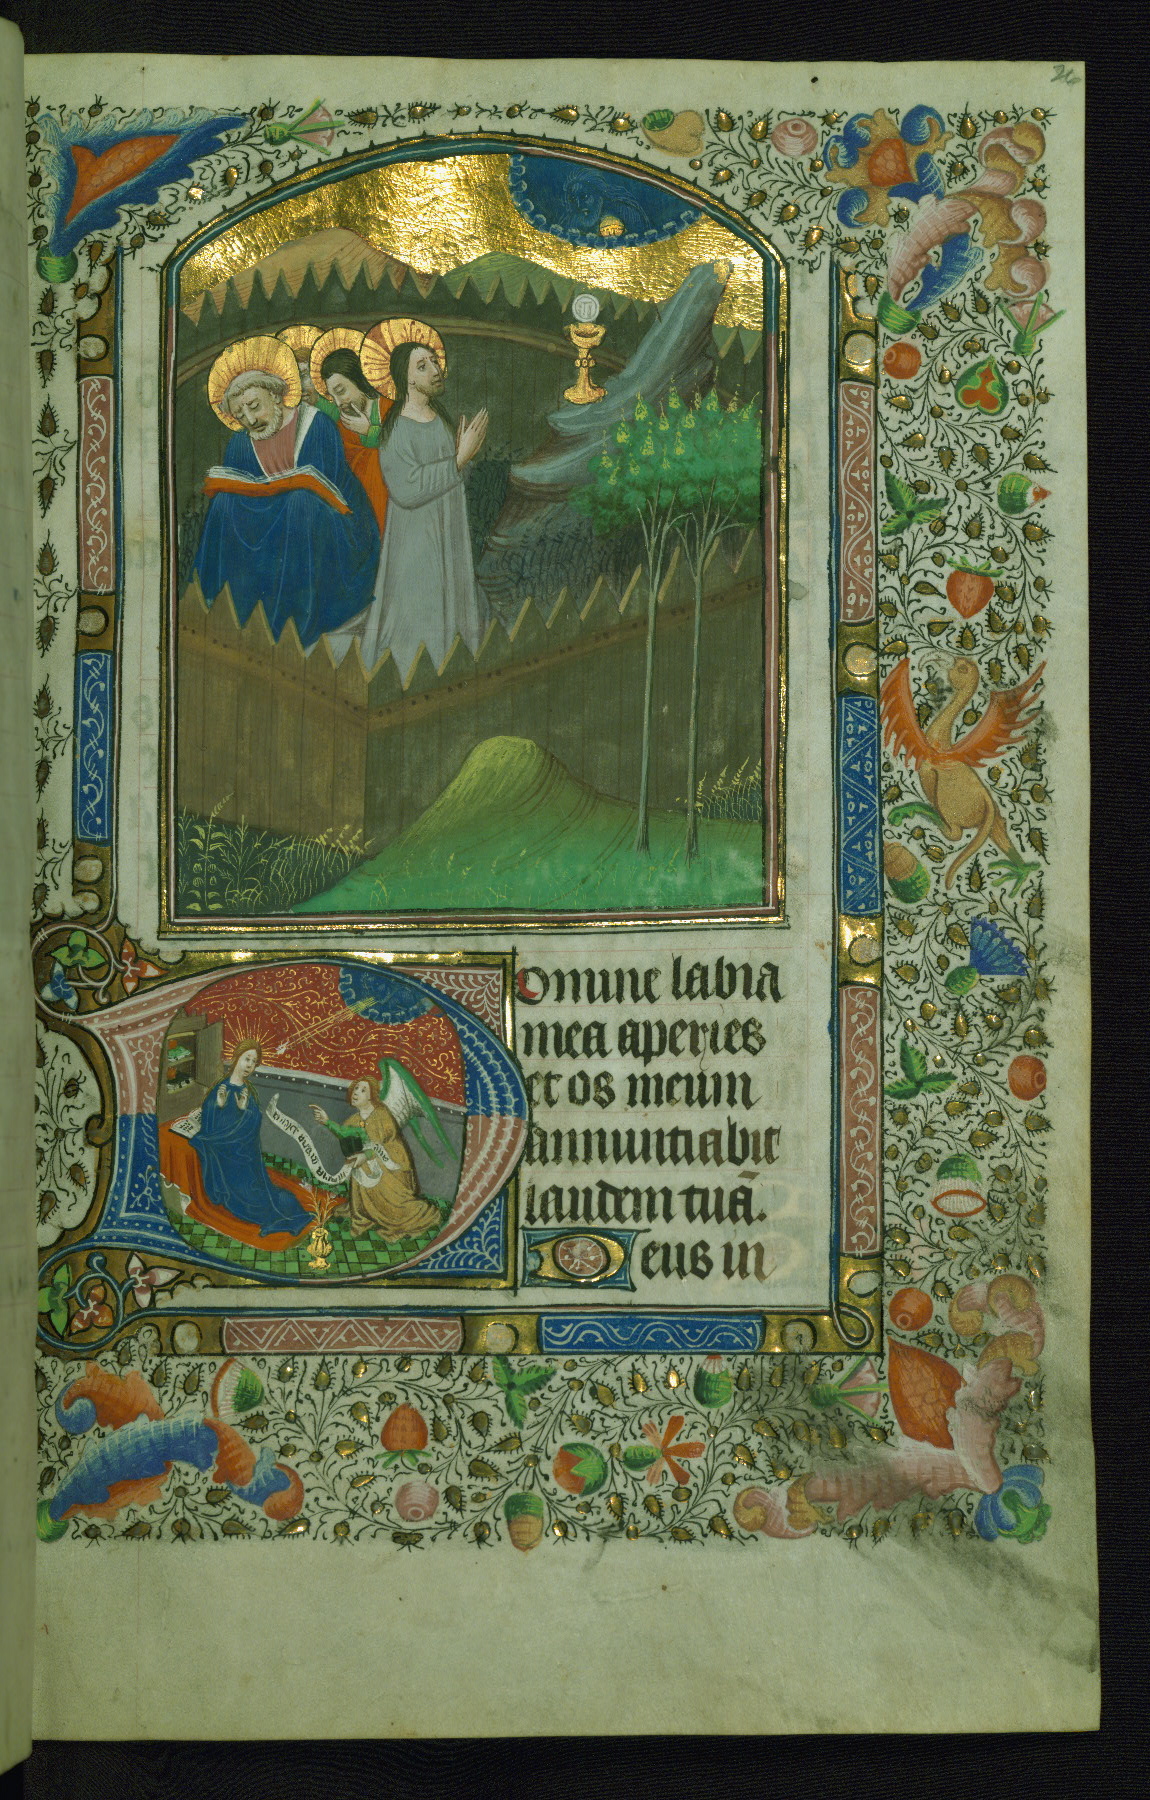 26
Domine labia
mea aperies
et os meum
annuntiabit
laudem tuā.
Deus in